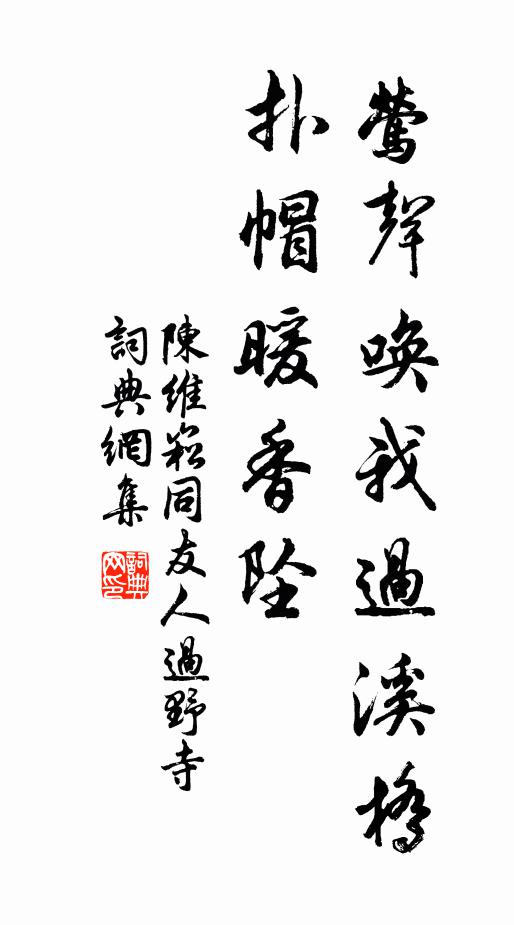 鶯聲喚我過溪橋
扑帽暖香墜
陳維崧同友人過野寺
詞典網集
詞典網印